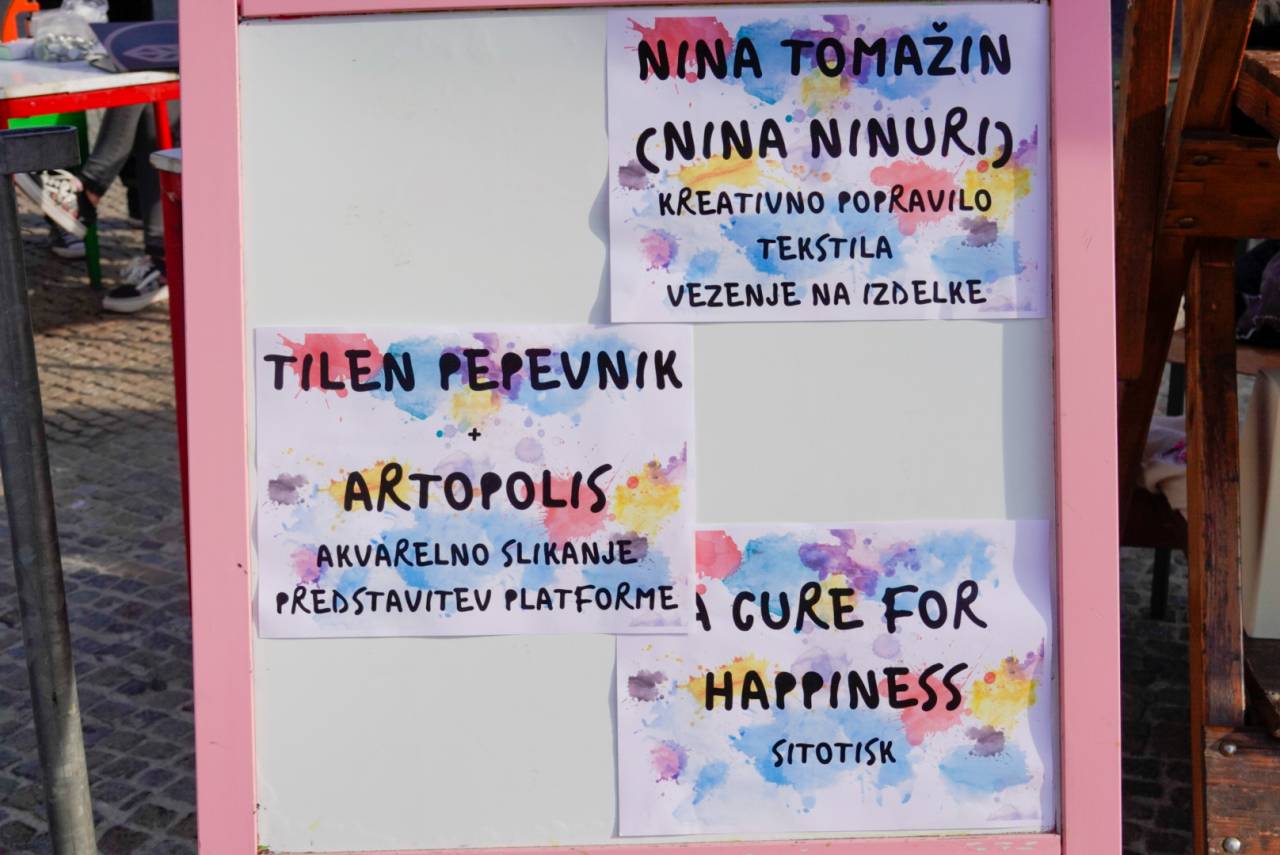 NINA TOMAŽIN
(NINA NINURI)
KREATIVNO POPRAVILO
TEKSTILA
VEZENJE NA IZDELKE
TILEN PEPEVNIK
+
ARTOPOLIS
AKVARELNO SLIKANJE
PREDSTAVITEV PLATFORME
A CURE FOR
HAPPINESS
SITOTISK